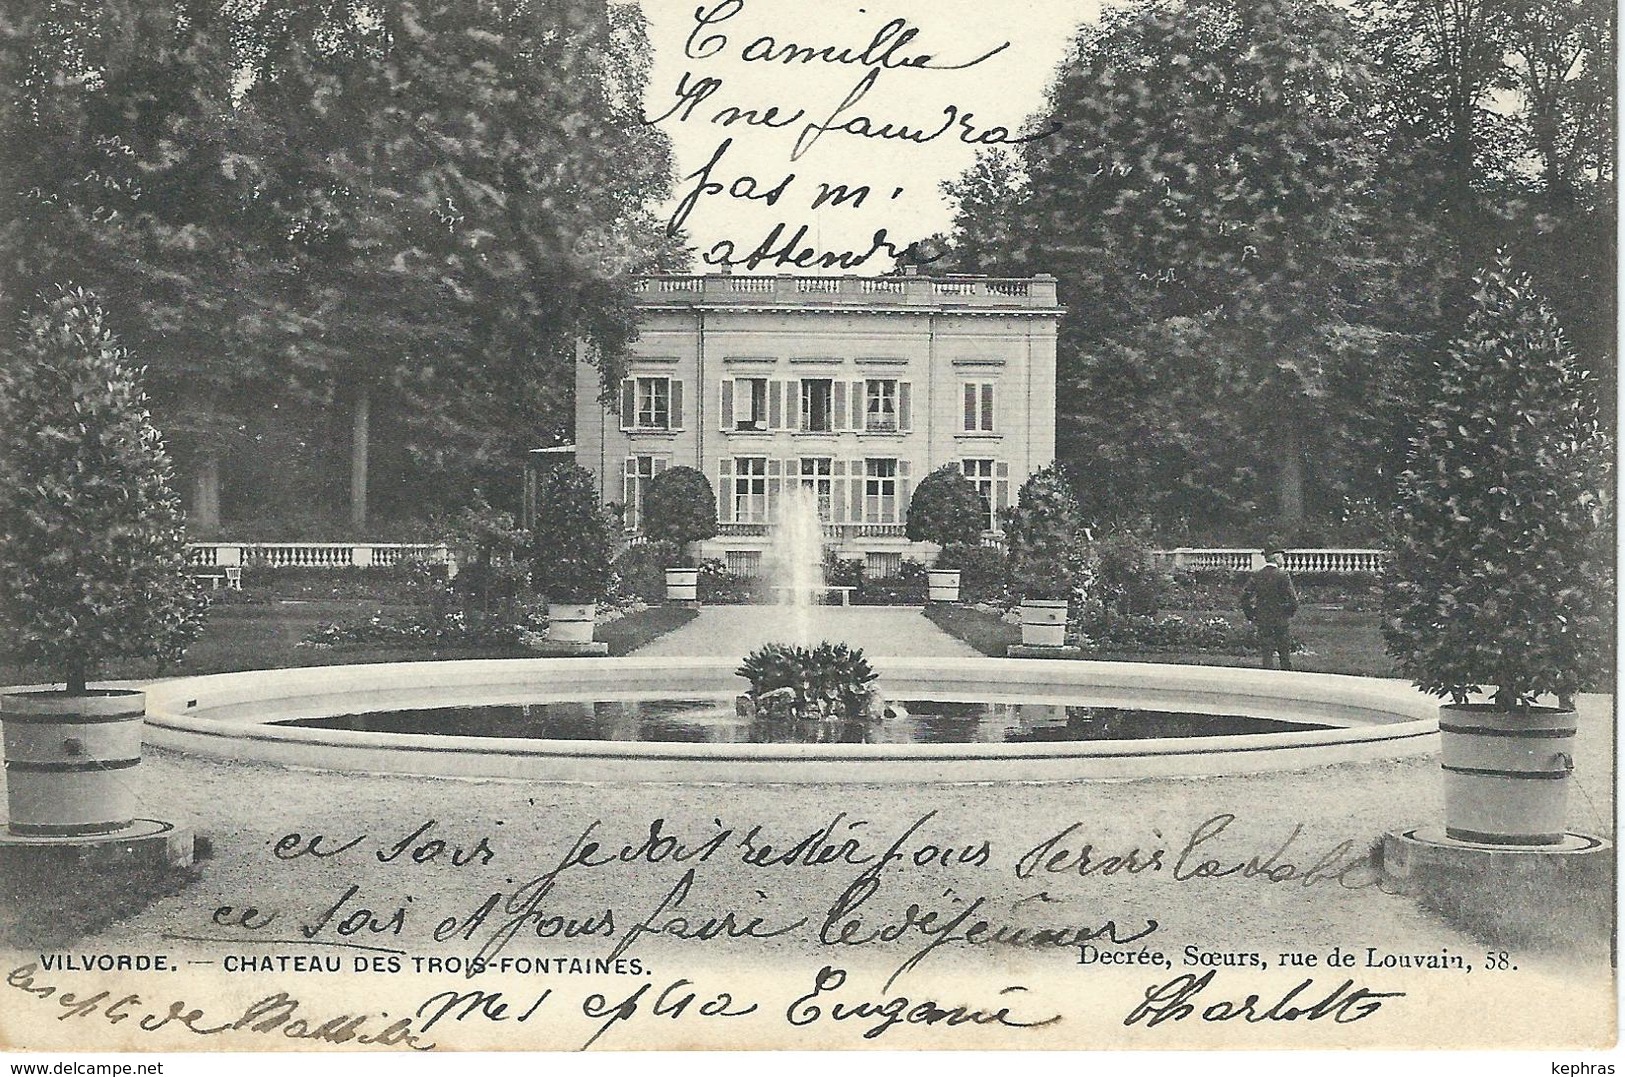 Camille
Il ne faudra
pas m'
attendre
ce soir je dois rester pour servir la table
ce soir et pour faire le déjeuner
VILVORDE. — CHATEAU DES TROIS-FONTAINES.
Decrée, Sœurs, rue de Louvain, 58.
les de Mathilde
Mes à Eugenie Charlotte
kephras